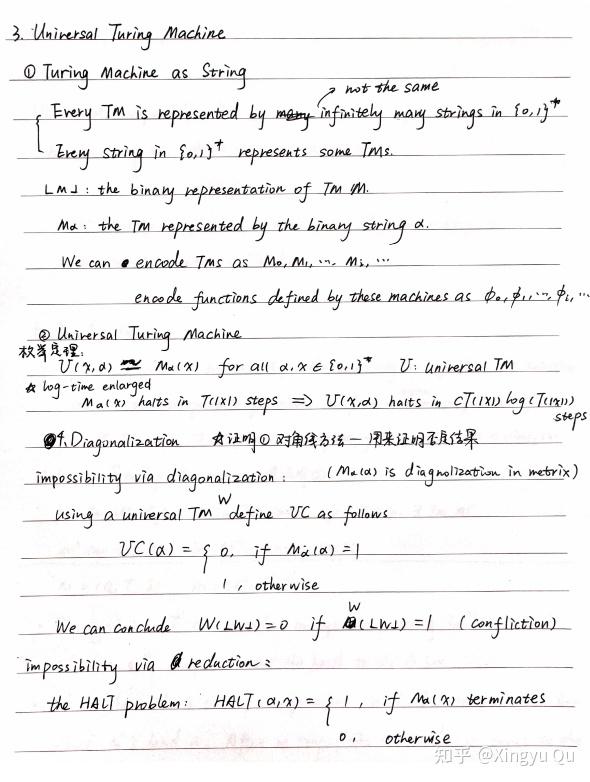 3. Universal Turing Machine
① Turing Machine as String
not the same
Every TM is represented by many infinitely many strings in {0,1}*
Every string in {0,1}* represents some TMs.
⌊M⌋: the binary representation of TM M.
Mα: the TM represented by the binary string α.
We can encode TMs as M₀, M₁, ..., Mᵢ, ...
encode functions defined by these machines as ϕ₀, ϕ₁, ..., ϕᵢ, ...
② Universal Turing Machine
枚举定理:
U(x,α) ≃ Mα(x) for all α,x ∈ {0,1}* U: universal TM
☆ log-time enlarged
Mα(x) halts in T(|x|) steps ⟹ U(x,α) halts in cT(|x|)log(T(|x|))
steps
4. Diagonalization ☆证明① 对角线方法 — 用来证明否定结果
impossibility via diagonalization: (Mα(α) is diagnolization in metrix)
W
using a universal TM define UC as follows
UC(α) = { 0, if Mα(α) = 1
1, otherwise
W
We can conclude W(⌊W⌋)=0 if (⌊W⌋)=1 (confliction)
impossibility via reduction:
the HALT problem: HALT(α,x) = { 1, if Mα(x) terminates
0, otherwise
知乎 @Xingyu Qu